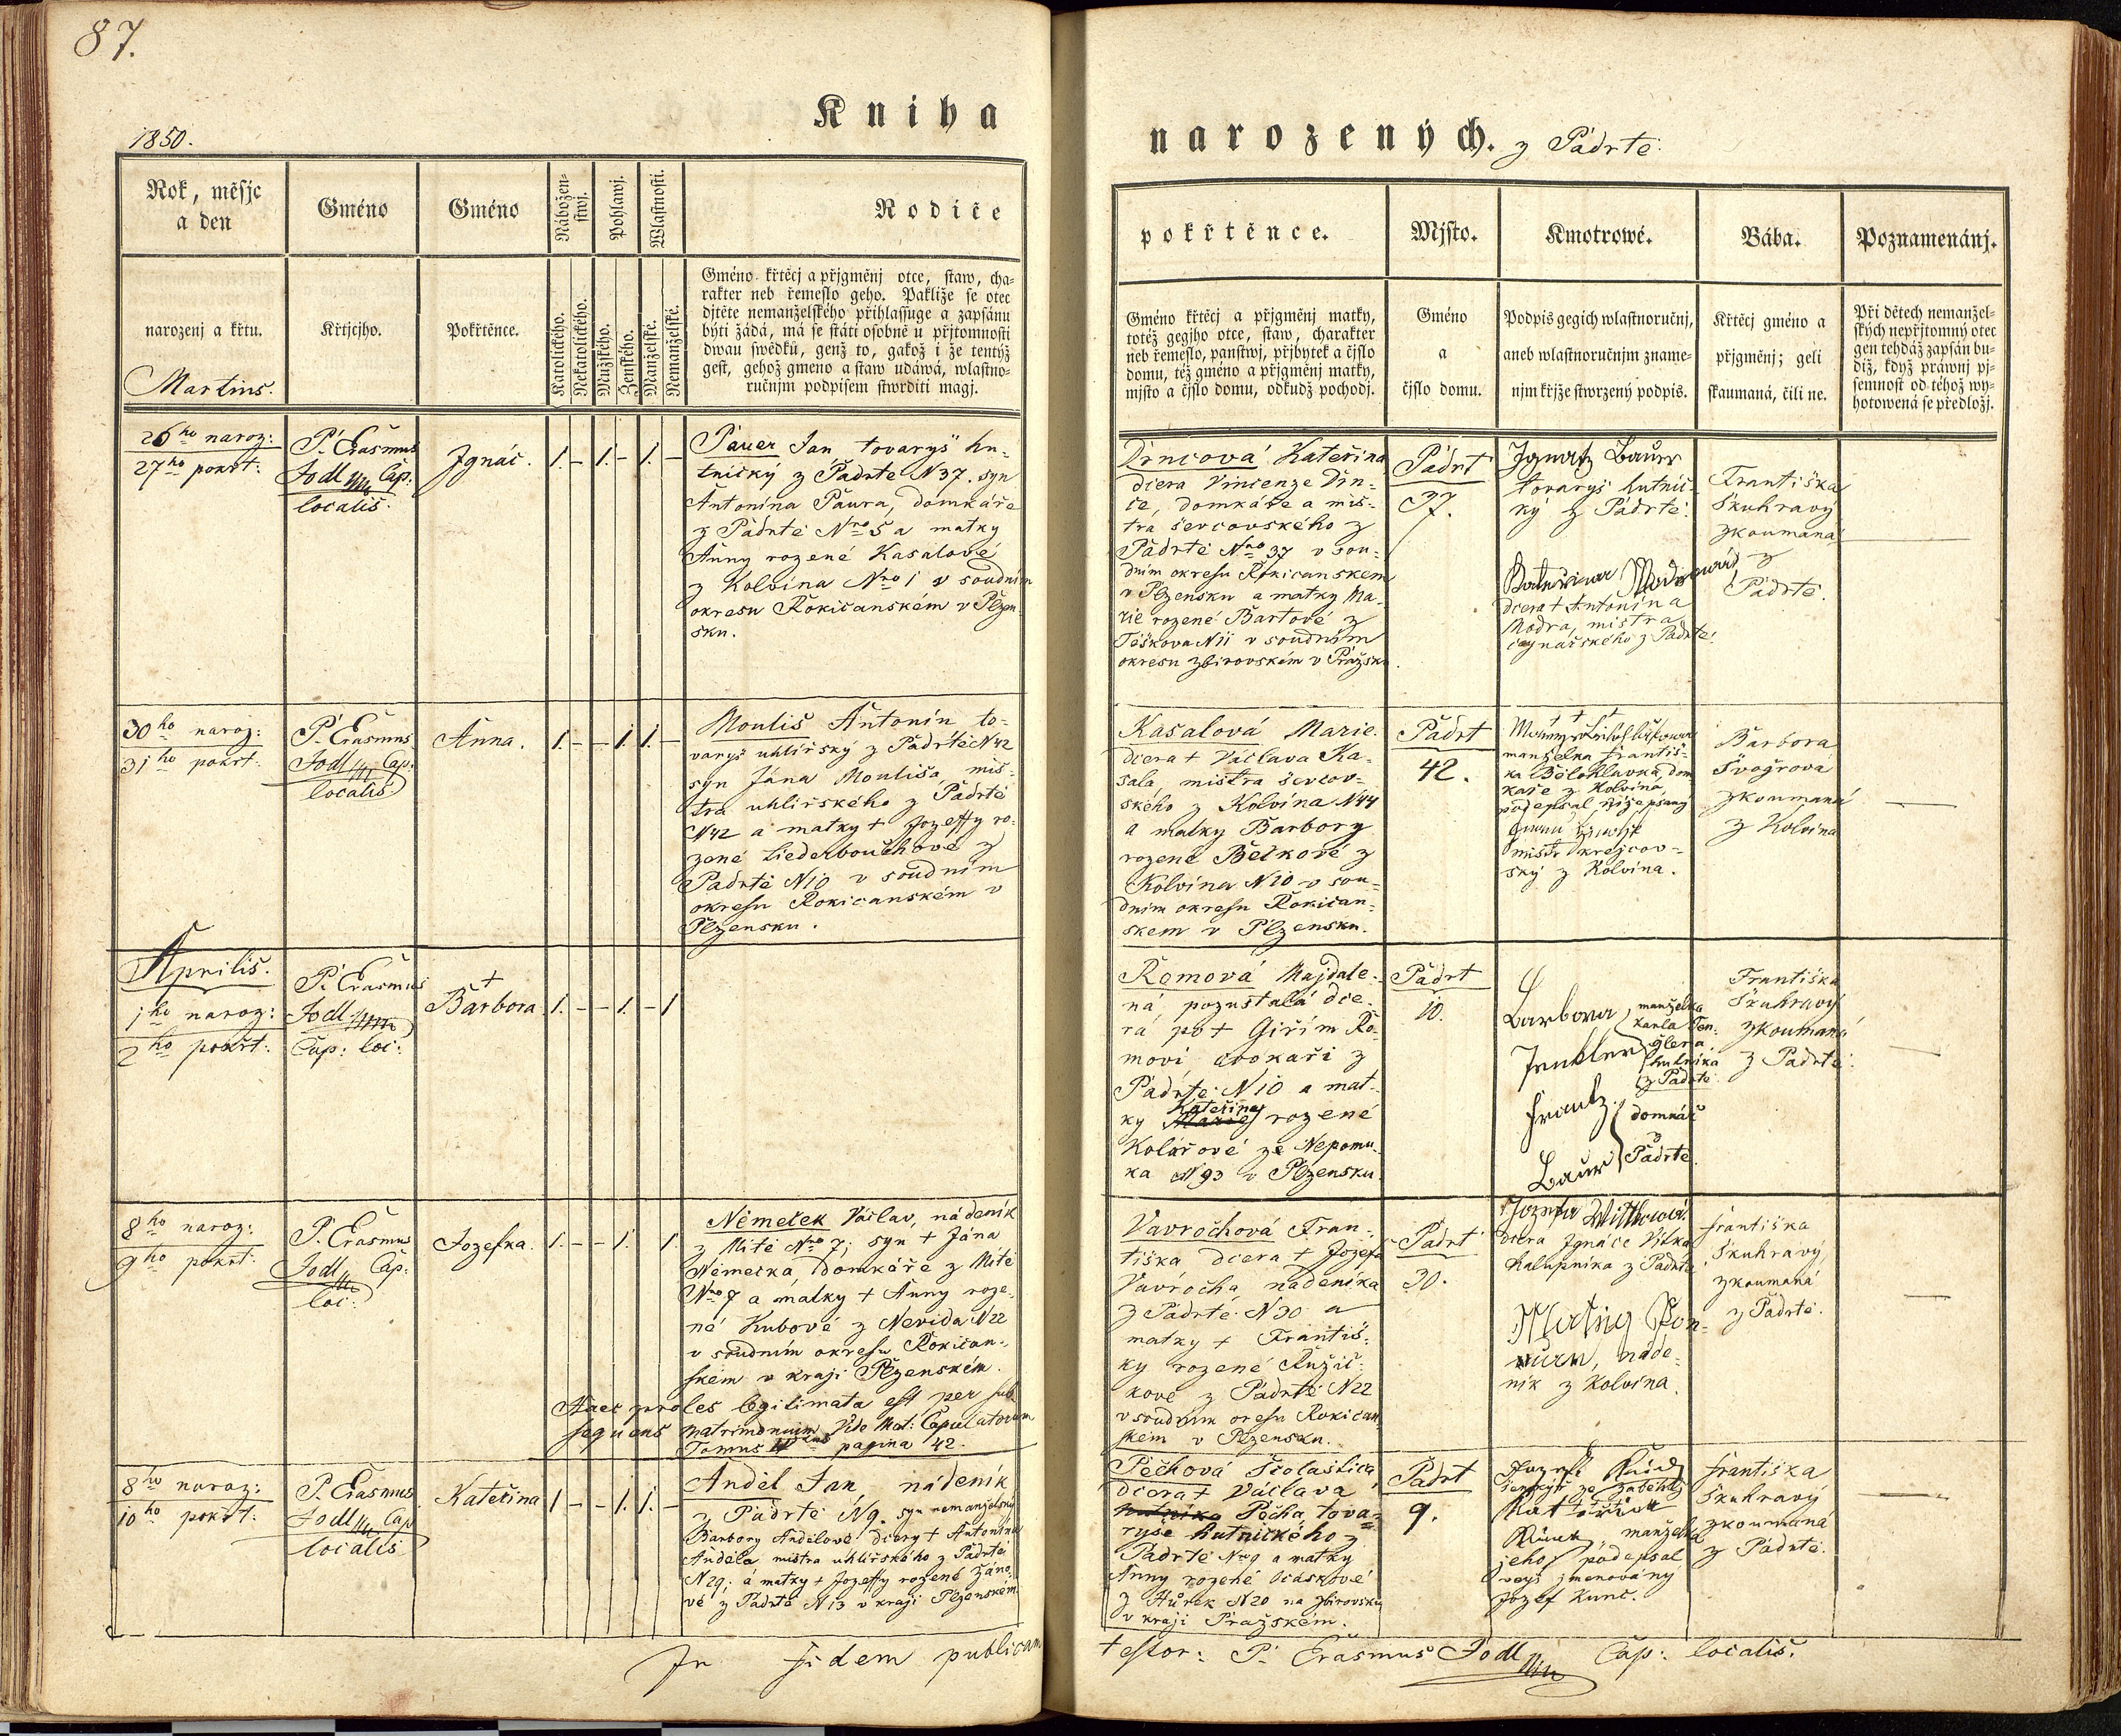 87.
Kniha
1850.
narozených. z Padrtě.
Rok, měsjc
a den
Gméno
Gméno
Nábožen-
stwj.
Pohlawj.
Wlastnosti.
Rodiče
narozenj a křtu.
Křtjcjho.
Pokřtěnce.
Katolického.
Nekatolického.
Mužského.
Ženského.
Manželské.
Nemanželské.
Gméno křtěcj a přjgměnj otce, staw, cha-
rakter neb řemeslo geho. Pakliže se otec
djtěte nemanželského přihlassuge a zapsánu
býti žádá, má se státi osobně u přjtomnosti
dwau swědků, genž to, gakož i že tentýž
gest, gehož gmeno a staw udáwá, wlastno-
ručnjm podpisem stwrditi magj.
Martius.
pokřtěnce.
Mjsto.
Kmotrowé.
Bába.
Poznamenánj.
Gméno křtěcj a přjgměnj matky,
totéž gegjho otce, staw, charakter
neb řemeslo, panstwj, přjbytek a čjslo
domu, též gméno a přjgměnj matky,
mjsto a čjslo domu, odkudž pochodj.
Gméno
a
čjslo domu.
Podpis gegich wlastnoručnj,
aneb wlastnoručnjm zname-
njm křjže stwrzený podpis.
Křtěcj gméno a
přjgměnj; geli
skaumaná, čili ne.
Při dětech nemanžel-
ských nepřjtomný otec
gen tehdáž zapsán bu-
diž, když práwnj pj-
semnost od téhož wy-
hotowená se předložj.
26ho naroz:
27ho pokřt:
P. Erasmus
Jodl Cap:
localis.
Jgnác.
1. – 1. – 1. –
Pauer Jan tovaryš hu-
tnický z Padrtě N 37. syn
Antonína Paura, domkáře
z Padrtě Nro 5 a matky
Anny rozené Kasalové
z Kolvína Nro 1 v soudním
okresu Rokičanském v Plzen-
sku.
Drncová Kateřina
dcera Vincenze Drn-
ce, domkáře a mis-
tra ševcovského z
Padrtě Nro 37 v sou-
dním okresu Rokicanskem
v Plzensku a matky Ma-
rie rozené Bartové z
Těškova N 11 v soudním
okresu zbirovském v Pražsku.
Padrt
37.
Jgnatz Bauer
tovaryš hutnic-
ký z Padrtě.
dcera + Antonína
Modra, mistra
z Padrtě.
Františka
Škuhravý
zkoumaná
z
Padrtě.
30ho naroz:
31ho pokřt:
P. Erasmus
Jodl Cap:
localis
Anna.
1. – – 1. 1. –
Moulis Antonín to-
varyš uhlířský z Padrtě N 42
syn Jána Moulisa, mis-
tra uhlířského z Padrtě
N 42 a matky + Jozeffy ro-
zené Liederbouchové z
Padrtě N 10 v soudním
okresu Rokicanském v
Plzensku.
Kasalová Marie.
dcera + Václava Ka-
sala, mistra ševcov-
ského z Kolvína N 44
a matky Barbory
rozené Bečkové z
Kolvína N 10 v sou-
dním okresu Rokičan-
skem v Plzensku.
Padrt
42.
+ + +
manželka Františ-
ka Bělohlavka, dom
káře z Kolvína,
podepsal níže psaný
mistr krejcov-
ský z Kolvína.
Barbora
Švogrová
zkoumaná
z Kolvína
Aprilis.
1ho naroz:
2ho pokřt:
P. Erasmus
Jodl
Cap: loc:
+
Barbora.
1. – – 1. – 1
Řemová Majdale-
ná pozustalá dce-
ra po + Giřím Řo-
movi cvokaři z
Padrtě N 10 a mat-
ky Kateřiny rozené
Kolářové ze Nepomu-
ka N 93 v Plzensku
Padrt
10.
Barbora manželka
Karla Jen-
Jenkler glera
hutníka
z Padrtě.
Frantz domkář
z
Baur Padrtě.
Františka
Škuhravý
zkoumaná
z Padrtě.
8ho naroz:
9ho pokřt:
P. Erasmus
Jodl Cap:
loc:
Jozefka.
1. – – 1. 1.
Němeček Václav, nádeník
z Mítě Nro 7; syn + Jána
Němečka, domkáře z Mítě
Nro 7 a matky + Anny roze-
né Kubové z Nevida N 22
v soudním okresu Rokičan-
ském v kraji Plzenském.
Haec proles legitimata est per sub
sequens matrimonium Vide Mat: Copulatorum
Tomus pagina 42.
Vavročhová Fran-
tiška dcera + Jozefa
Vavrocha, nádeníka
z Padrtě N 30 a
matky + Františ-
ky rozené Růžič-
kové z Padrtě N 22
v soudním oresu Rokičan-
ském v Plzensku.
Padrt
30.
Jozefa Wittkowá
dcera Jgnáce Vitka
Kalupníka z Padrtě
náde-
ník z Kolvína.
Františka
Škuhravý
zkoumaná
z Padrtě.
8ho naroz:
10ho pokřt:
P. Erasmus
Jodl Cap
localis
Kateřina
1 – – 1. 1. –
Anděl Jan, nádeník
z Padrtě N 9. syn nemanželský
Barbory Andělové dcery + Antonína
Anděla mistra uhlířského z Padrtě
N 29; a matky + Jozeffy rozené Záno-
vé z Padrtě N 13 v kraji Plzenském
Pěchová Školastica
dcera + Václava
Pěcha, tova-
ryše hutnického z
Padrtě Nro 9 a matky
Anny rozené Ocáskové
z Hůrek N 20 na Zbirovsku
v kraji Pražském.
Padrt
9.
manželka
jeho podepsal
veyš jmenovaný
Jozef Kunc.
Františka
Škuhravý
zkoumaná
z Padrtě.
In fidem publicam
testor: P. Erasmus Jodl Cap: localis.